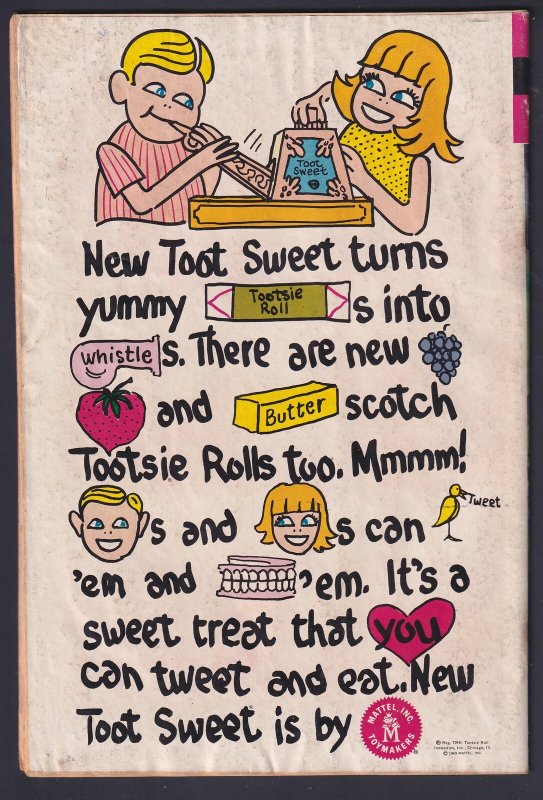 Toot
Sweet
New Toot Sweet turns
yummy Tootsie Roll s into
whistle s. There are new
and Butter scotch
Tootsie Rolls too. Mmmm!
s and s can Tweet
'em and 'em. It's a
sweet treat that you
can tweet and eat. New
Toot Sweet is by MATTEL, INC. M TOYMAKERS
® Reg. TMK. Tootsie Roll
Industries, Inc., Chicago, Ill.
© 1969 MATTEL, INC.